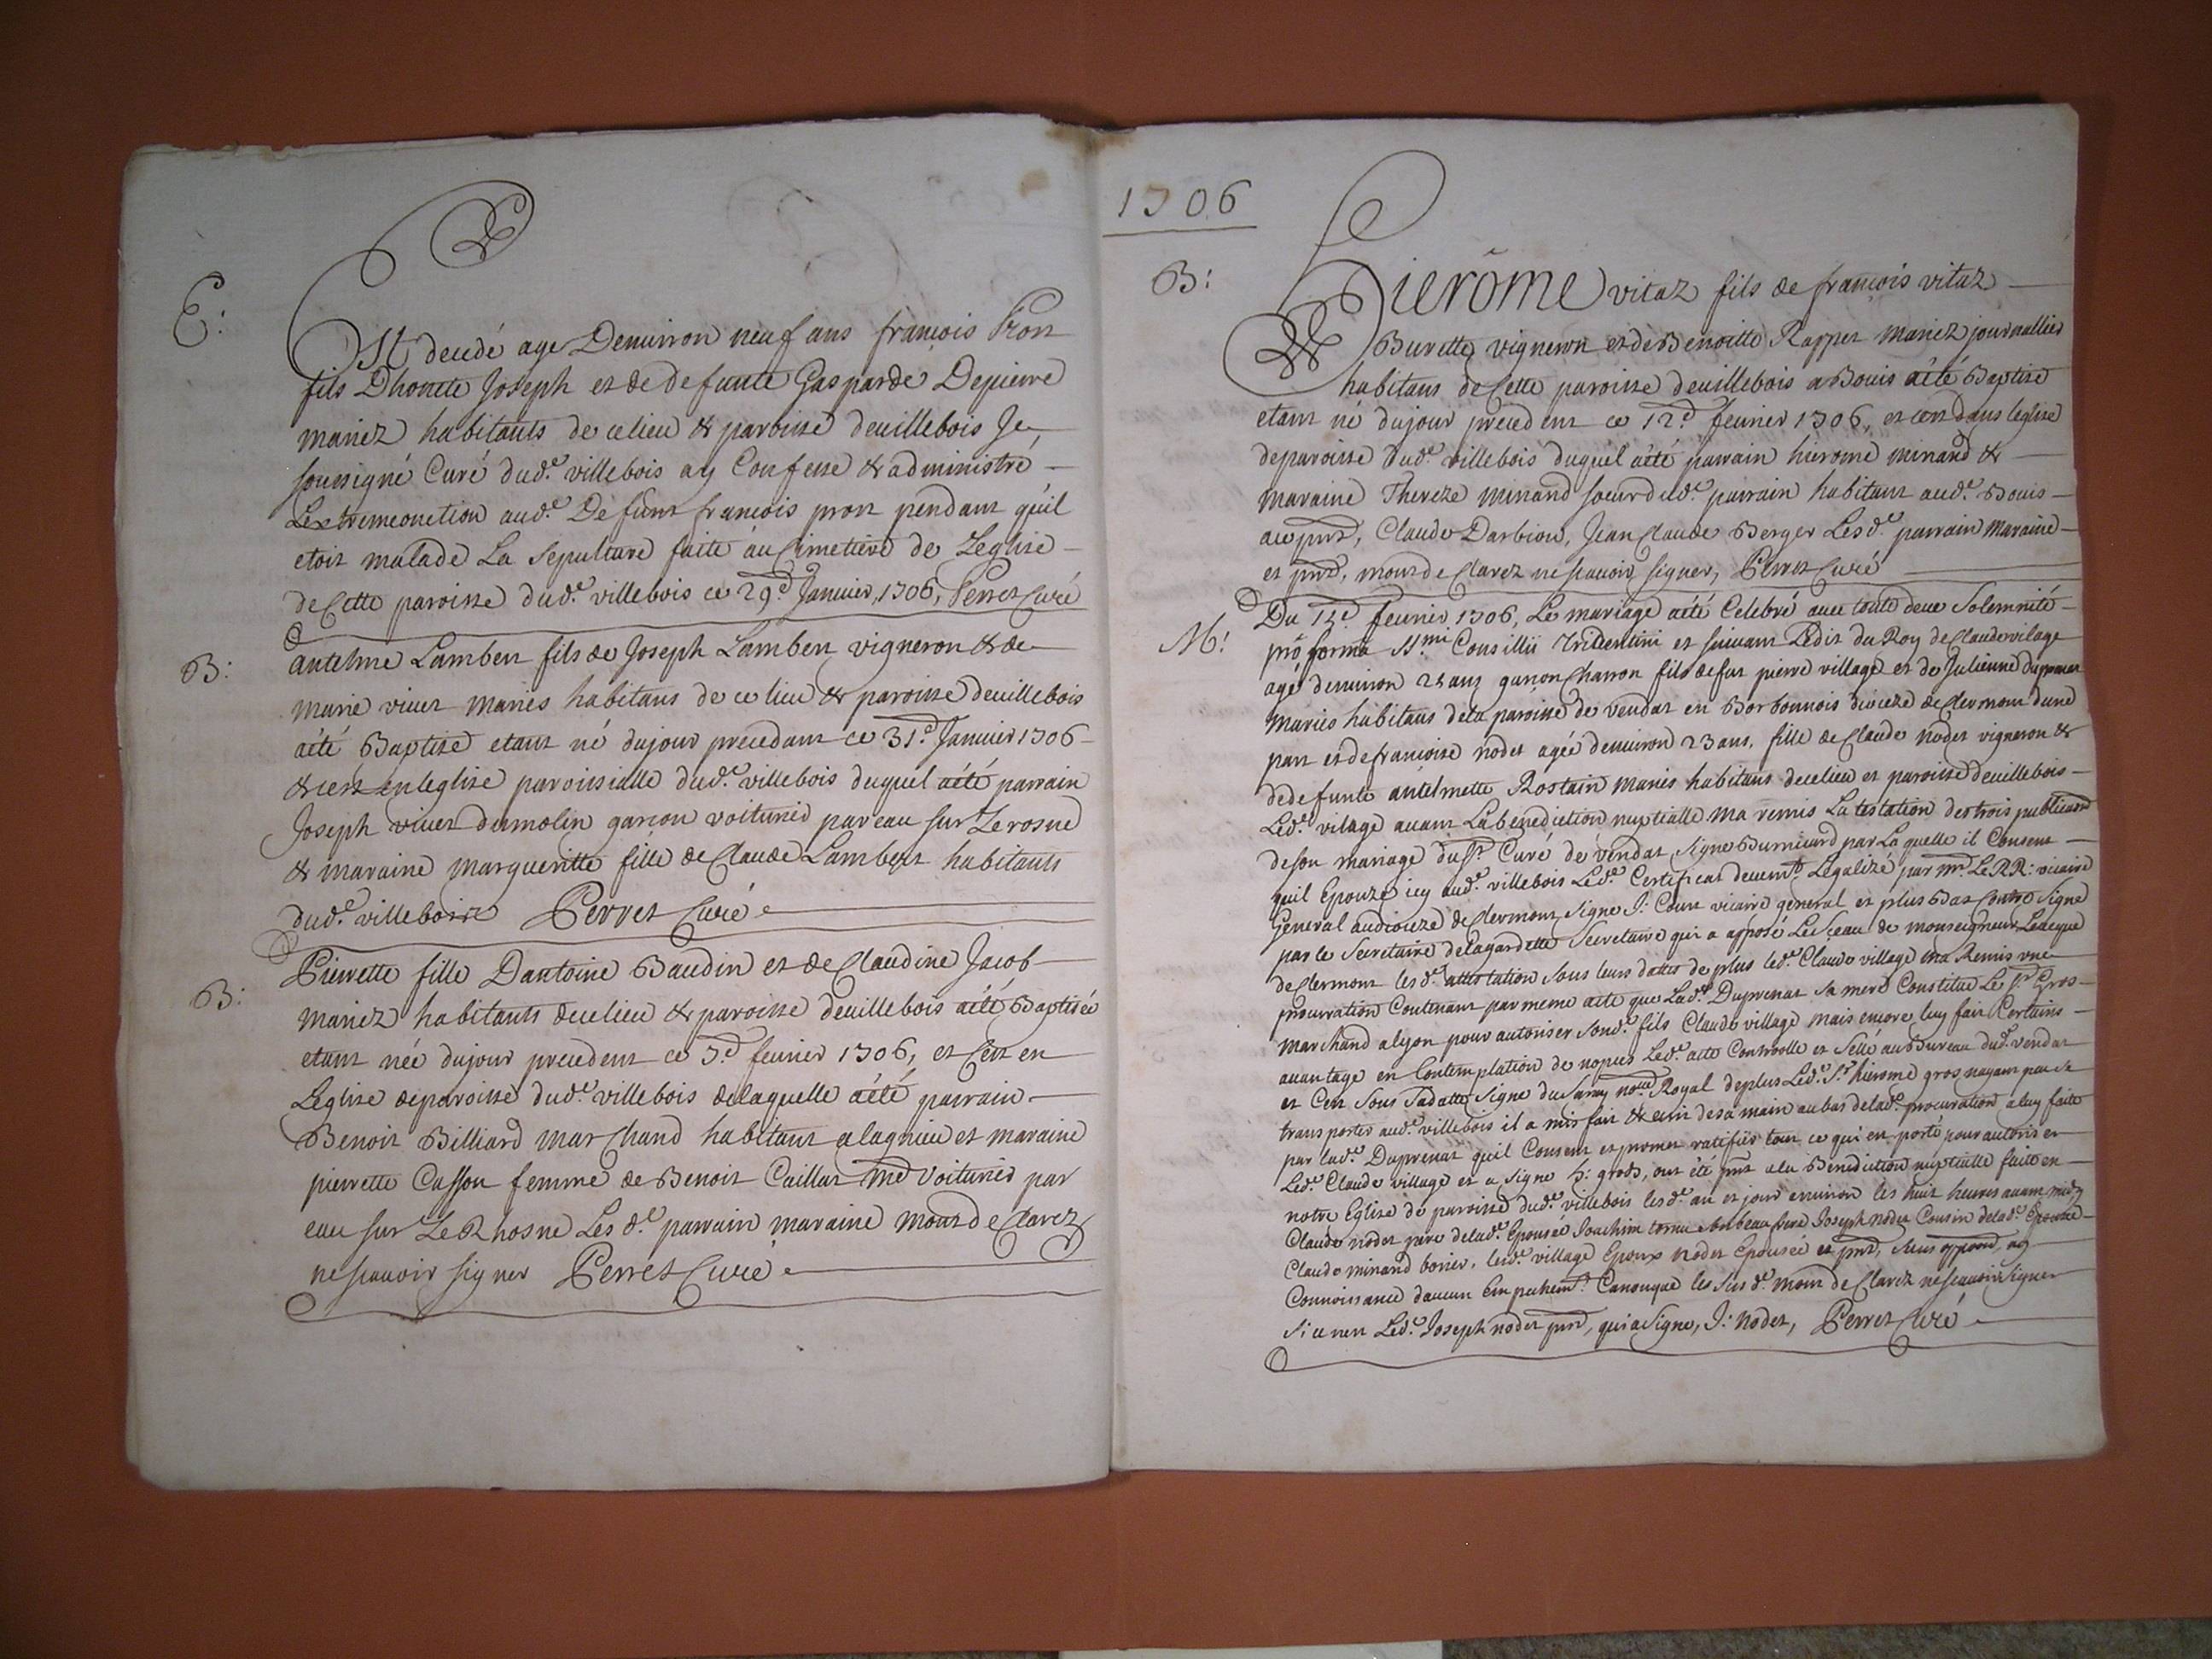 E:
Est decedé agé Denuiron neuf ans françois Pron
fils Dhonete Joseph et de defunte Gasparde Depierre
mariez habitants de ce lieu & paroisse deuillebois Je
soussigné Curé dud.e villebois ay Confessé & administré
Lextremeonction aud.e Defunt françois pron pendant quil
etoit malade La sepulture faite au Cimetiere de Leglise
de Cette paroisse dud.e villebois ce 29.e Januier, 1706, Perret Curé
B:
antelme Lambert fils de Joseph Lambert vigneron & de
marie viuet mariés habitans de ce lieu & paroisse deuillebois
aété Baptisé etant né dujour precedant ce 31.e Januier 1706
& cest enleglise paroissialle dud.e villebois duquel aété parrain
Joseph viuet dumolin garcon voiturier pareau sur Le rosne
& maraine margueritte fille de Claude Lambert habitants
dud.e villebois Perret Curé
B:
Pierrette fille Dantoine Baudin et de Claudine Jacob
mariez habitants decelieu & paroisse deuillebois aété Baptisée
etant née dujour precedent ce 3.e feurier 1706, et Cest en
Leglise deparoisse dud.e villebois delaquelle aété parrain
Benoit Billiard marchand habitant alagnieu et maraine
pierrette Casson femme de Benoit Caillat md voiturier par
eau sur Le Rhosne Les d.e parrain maraine mont declarez
nescauoir signer Perret Curé
1706
B:
Hierôme vitaz fils de françois vitaz
Burette vigneron et de Benoitte Rapper mariez journallier
habitans de Cette paroisse deuillebois a Bouis aété Baptisé
etant né dujour precedent ce 12.e feurier 1706, et cest dans leglise
deparoisse dud.e villebois duquel aété parrain hierome minand &
maraine Therèze minand soeur dud.e parrain habitant aud.e Bouis
au pnt, Claude Darbion, Jean Claude Berger Lesd.e parrain maraine
et pnt, mont declarez nescauoir signer, Perret Curé
M:
Du 15.e feurier 1706, Le mariage aété Celebré auec toute deue Solemnité
prô forma SS.mi Consillii Tridentini et suiuant Ledit du Roy de Claude vilage
agé denuiron 25 ans garcon Charron fils defut pierre village et de Julienne Duprenat
mariés habitans dela paroisse de vendat en Borbonnois dioceze de clermont dune
part et de francoise nodet agée denuiron 23 ans, fille de Claude nodet vigneron &
dedefunte antelmette Rostain mariés habitans decelieu et paroisse deuillebois
Led.e vilage auant La benediction nuptialle ma remis Latestation destrois publicaons
deson mariage du Sr Curé de vendat signé Burnicard par Laquelle il Consent
quil Epouze icy aud.e villebois Led.e Certificat deuem.t Legalizé par mr. Le RR: vicaire
General audioceze de Clermont signe J: Court vicaire general et plus Bas Contre signé
par le Secretaire delagardette Secretaire qui a apposé Le Sceau de monseigneur Leueque
de Clermont les d.e attestation sous leurs dattes de plus led.e Claude village ma Remis vne
procurration Contenant par meme acte que Lad.e Duprenat sa mere Constitue Le Sr Gros
marchand alyon pour autoriser sond.e fils Claude village mais encore luy fait Certains
auantage en Contemplation de nopces Led.e acte Controolle et Sellé au Bureau dud.e vendat
et Cest sous Sadatte signe du Saray no.re Royal deplus Led.e Sr hierome gros nayant peu se
transporter aud.e villebois il a mis fait & ecrit desa main au bas delad.e procuration aluy faite
par lad.e Duprenat quil Consent et promet ratifier tout ce qui en porte pour autoriser
Led.e Claude village et a signe h: gros, ont été pnt ala Benediction nuptialle faite en
notre Eglise de paroisse dud.e villebois lesd.e an et jour enuiron les huit heures auant midy
Claude nodet pere delad.e Epousée Joachim tornu son beau frere Joseph nodet Cousin delad.e Epousée
Claude minand bouier, lesd.e village Epoux nodet Epousée et pnt, sans opposon, ny
Connoissance daucun Empechem.t Canonique les susd.e mont declarez nescauoir signer
si ce nest Led.e Joseph nodet pnt, qui a signe, J: nodet, Perret Curé